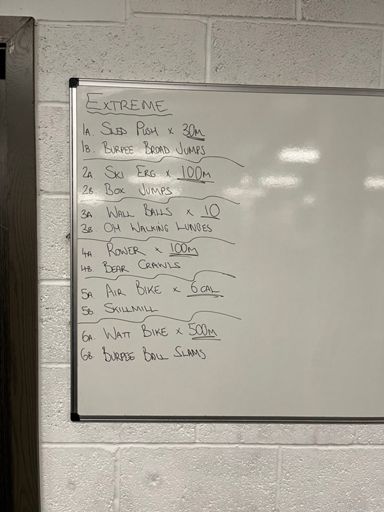 EXTREME
1A SLED PUSH x 30M
1B. BURPEE BROAD JUMPS
2A SKI ERG x 100M
2B BOX JUMPS
3A WALL BALLS x 10
3B OH WALKING LUNGES
4A ROWER x 100M
4B BEAR CRAWLS
5A AIR BIKE x 6 CAL
5B SKILLMILL
6A. WATT BIKE x 500M
6B. BURPEE BALL SLAMS